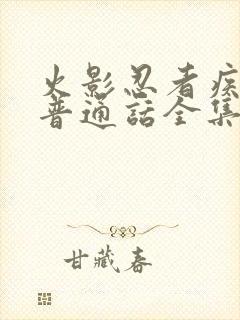 火影忍者疾
普通話全集
甘藏春